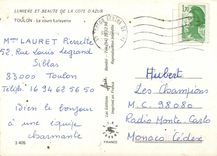 LUMIÈRE ET BEAUTÉ DE LA CÔTE D'AZUR
TOULON - Le cours Lafayette
Mme LAURET Pierrette
52, Rue Louis Legrand
Siblas
83000 Toulon
Tel 16 94 62 56 50
Bien le bonjour
à une équipe
charmante
Hubert
Les Champions
M.C. 98080
Radio Monte Carlo
Monaco Cédex
FRANCE